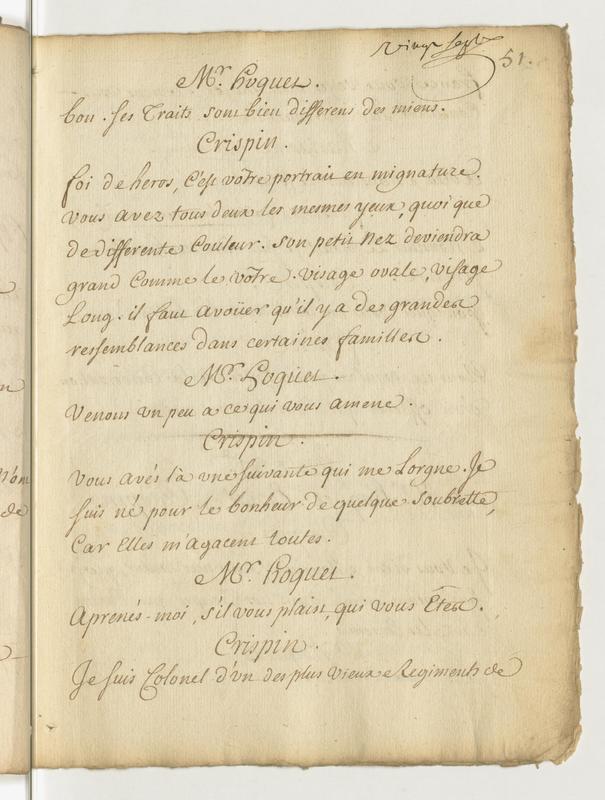 vingt sept
51.
Mr. Hoquet.
bon. ses Traits sont bien differens des miens.
Crispin.
foi de heros, C'est vôtre portrait en mignature.
vous avez tous deux les mesmes yeux, quoi que
de differente Couleur. son petit Nez deviendra
grand Comme le vôtre. visage ovale, visage
Long. il faut avoüer qu'il y a de grandes
ressemblances dans certaines familles.
Mr. Hoquet.
Venons un peu a ce qui vous amene.
Crispin.
Vous avés là une suivante qui me Lorgne. Je
suis né pour le bonheur de quelque Soubrette,
Car Elles m'agacent toutes.
Mr. Hoquet.
Aprenés-moi, s'il vous plaist, qui vous Êtes.
Crispin.
Je suis Colonel d'un des plus vieux Regiments de